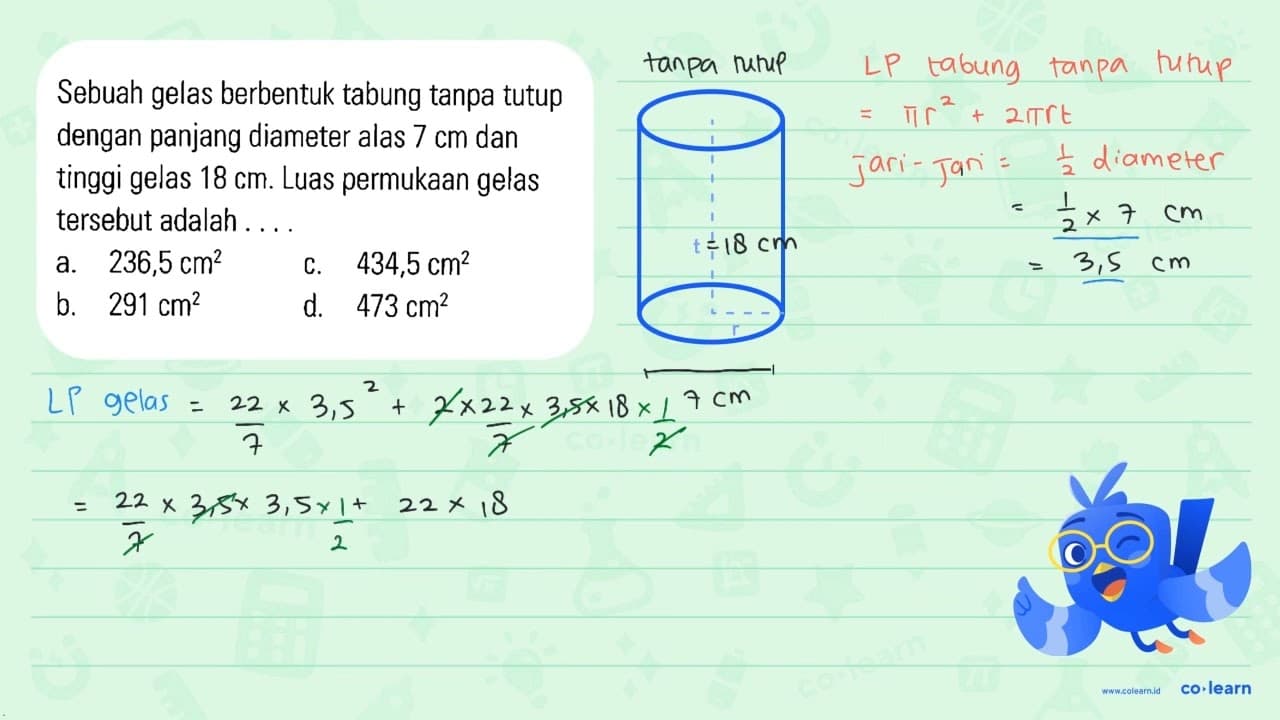 Sebuah gelas berbentuk tabung tanpa tutup
dengan panjang diameter alas 7 cm dan
tinggi gelas 18 cm. Luas permukaan gelas
tersebut adalah . . . .
a. 236,5 cm² c. 434,5 cm²
b. 291 cm² d. 473 cm²
tanpa tutup
t = 18 cm
r
7 cm
LP tabung tanpa tutup
= πr² + 2πrt
Jari-Jari = 1/2 diameter
= 1/2 × 7 cm
= 3,5 cm
LP gelas = 22/7 × 3,5² + 2 × 22/7 × 3,5 × 18 × 1/2
= 22/7 × 3,5 × 3,5 × 1/2 + 22 × 18
www.colearn.id co·learn